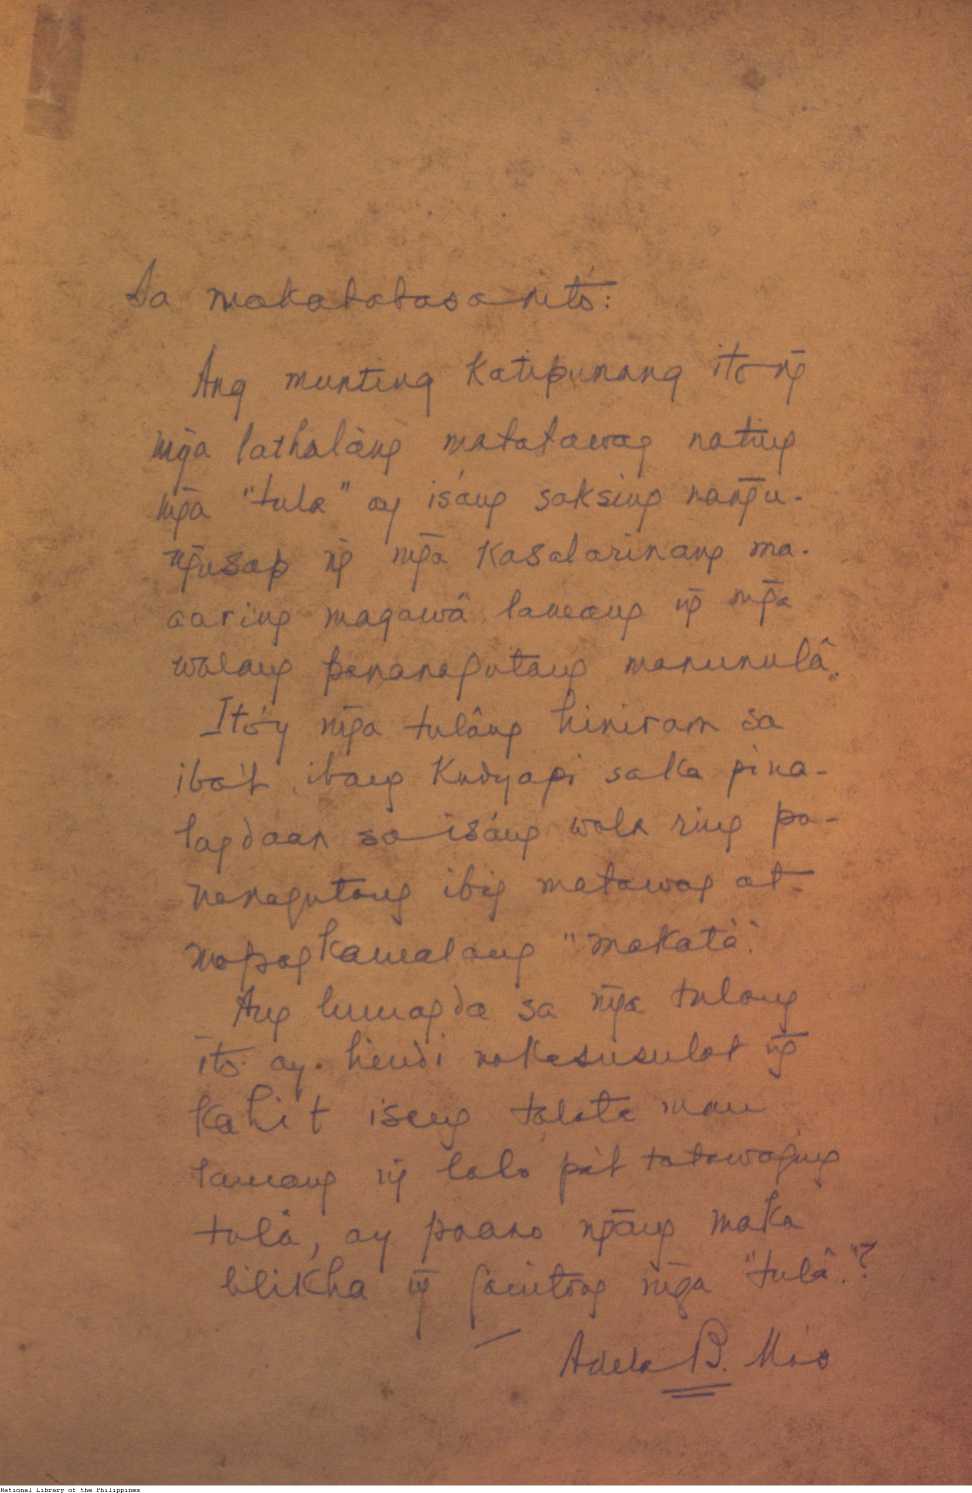 Sa makababasa nitó:
Ang munting katipunang itó n͠g
mg̃a lathalàng matatawag nating
mg̃a "tula" ay isáng saksing nang̃u-
ng̃usap n͠g mg̃a kasalarinang ma-
aaring magawâ lamang n͠g mg̃a
walang pananagutang manunulâ.
Itó'y mg̃a tulâng hiniram sa
iba't ibang kudyapi saka pina-
lagdaan sa isáng wala ring pa-
nanagutang ibig matawag at
mapagkamalang "makatà".
Ang lumagda sa mg̃a tulang
itó ay hindi nakasusulat n͠g
kahit isang talata man
lamang n͠g lalo pa't tatawaging
tulâ, ay paano ng̃ang maka
lilikha n͠g ganitong mg̃a "tulâ."?
Adela B.